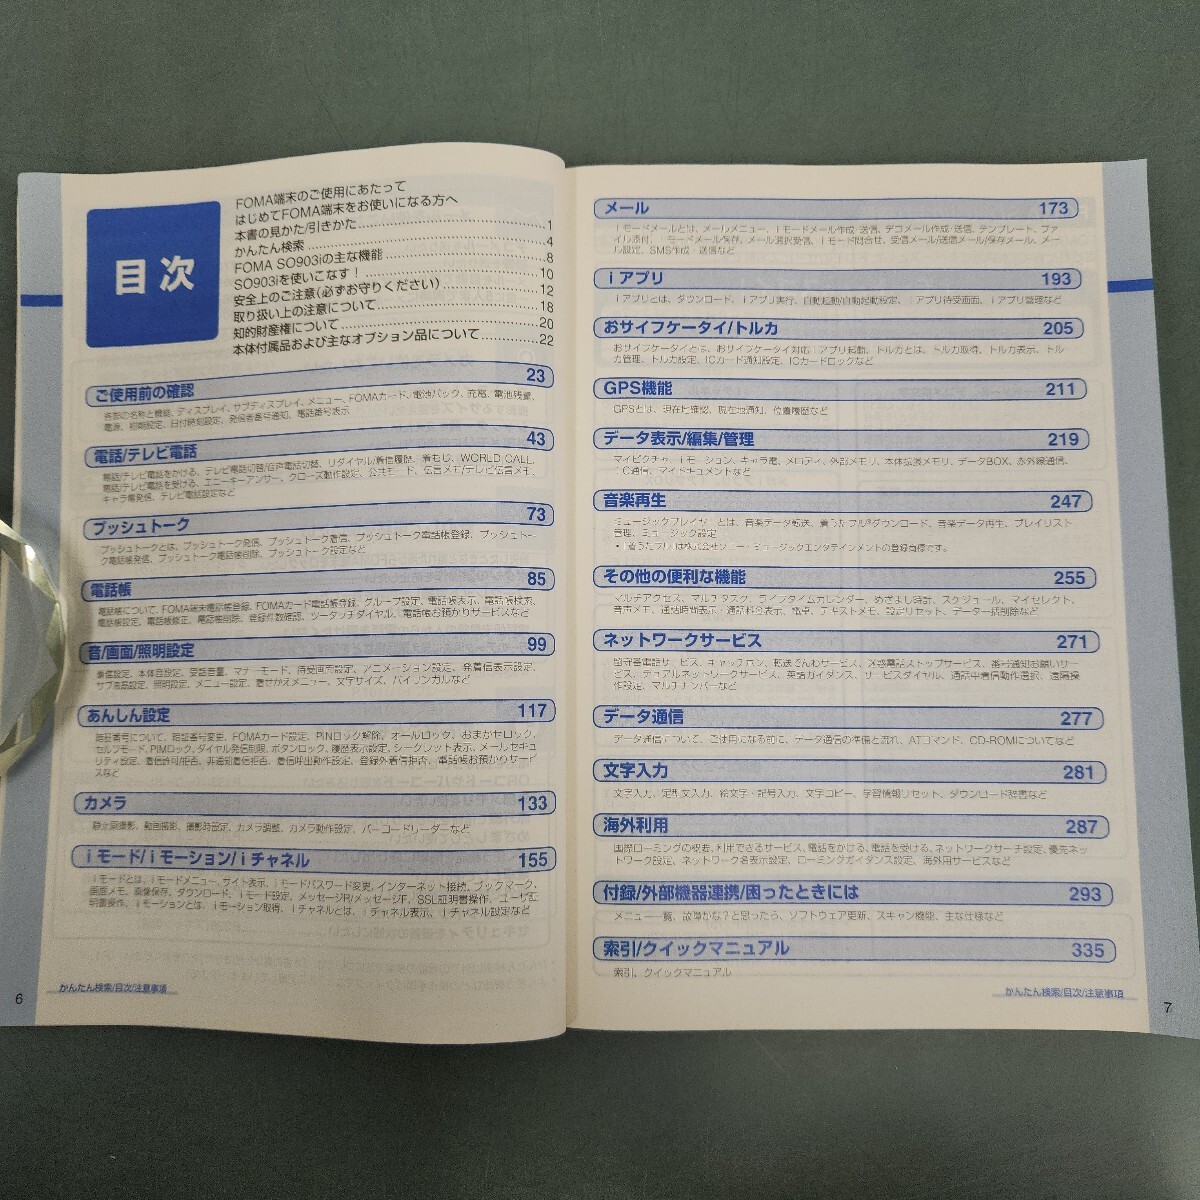 目次
FOMA端末のご使用にあたって
はじめてFOMA端末をお使いになる方へ
本書の見かた/引きかた 1
かんたん検索 4
FOMA SO903iの主な機能 8
SO903iを使いこなす! 10
安全上のご注意(必ずお守りください) 12
取り扱い上の注意について 18
知的財産権について 20
本体付属品および主なオプション品について 22
ご使用前の確認 23
各部の名称と機能、ディスプレイ、サブディスプレイ、メニュー、FOMAカード、電池パック、充電、電池残量、
電源、初期設定、日付時刻設定、発信者番号通知、電話番号表示
電話/テレビ電話 43
電話/テレビ電話をかける、テレビ電話切替/音声電話切替、リダイヤル/着信履歴、着もじ、WORLD CALL、
電話/テレビ電話を受ける、エニーキーアンサー、クローズ動作設定、公共モード、伝言メモ/テレビ伝言メモ、
キャラ電発信、テレビ電話設定など
プッシュトーク 73
プッシュトークとは、プッシュトーク発信、プッシュトーク着信、プッシュトーク電話帳登録、プッシュトー
ク電話帳発信、プッシュトーク電話帳削除、プッシュトーク設定など
電話帳 85
電話帳について、FOMA端末電話帳登録、FOMAカード電話帳登録、グループ設定、電話帳表示、電話帳検索、
電話帳設定、電話帳修正、電話帳削除、登録件数確認、ツータッチダイヤル、電話帳お預かりサービスなど
音/画面/照明設定 99
着信設定、本体音設定、受話音量、マナーモード、待受画面設定、アニメーション設定、発着信表示設定、
サブ液晶設定、照明設定、メニュー設定、着せかえメニュー、文字サイズ、バイリンガルなど
あんしん設定 117
暗証番号について、暗証番号変更、FOMAカード設定、PINロック解除、オールロック、おまかせロック、
セルフモード、PIMロック、ダイヤル発信制限、ボタンロック、履歴表示設定、シークレット表示、メールセキュ
リティ設定、着信許可/拒否、非通知着信拒否、着信呼出動作設定、登録外着信拒否、電話帳お預かりサービ
スなど
カメラ 133
静止画撮影、動画撮影、撮影時設定、カメラ調整、カメラ動作設定、バーコードリーダーなど
iモード/iモーション/iチャネル 155
iモードとは、iモードメニュー、サイト表示、iモードパスワード変更、インターネット接続、ブックマーク、
画面メモ、画像保存、ダウンロード、iモード設定、メッセージR/メッセージF、SSL証明書操作、ユーザ証
明書操作、iモーションとは、iモーション取得、iチャネルとは、iチャネル表示、iチャネル設定など
6
かんたん検索/目次/注意事項
メール 173
iモードメールとは、メールメニュー、iモードメール作成・送信、デコメール作成・送信、テンプレート、ファ
イル添付、iモードメール保存、メール選択受信、iモード問合せ、受信メール/送信メール/保存メール、メー
ル設定、SMS作成・送信など
iアプリ 193
iアプリとは、ダウンロード、iアプリ実行、自動起動/自動起動設定、iアプリ待受画面、iアプリ管理など
おサイフケータイ/トルカ 205
おサイフケータイとは、おサイフケータイ対応iアプリ起動、トルカとは、トルカ取得、トルカ表示、トル
カ管理、トルカ設定、ICカード通知設定、ICカードロックなど
GPS機能 211
GPSとは、現在地確認、現在地通知、位置履歴など
データ表示/編集/管理 219
マイピクチャ、iモーション、キャラ電、メロディ、外部メモリ、本体拡張メモリ、データBOX、赤外線通信、
iC通信、マイドキュメントなど
音楽再生 247
ミュージックプレイヤーとは、音楽データ転送、着うたフル®ダウンロード、音楽データ再生、プレイリスト
管理、ミュージック設定
•「着うたフル」は株式会社ソニー・ミュージックエンタテインメントの登録商標です。
その他の便利な機能 255
マルチアクセス、マルチタスク、ライフタイムカレンダー、めざまし時計、スケジュール、マイセレクト、
音声メモ、通話時間表示・通話料金表示、電卓、テキストメモ、設定リセット、データ一括削除など
ネットワークサービス 271
留守番電話サービス、キャッチホン、転送でんわサービス、迷惑電話ストップサービス、番号通知お願いサー
ビス、デュアルネットワークサービス、英語ガイダンス、サービスダイヤル、通話中着信動作選択、遠隔操
作設定、マルチナンバーなど
データ通信 277
データ通信について、ご使用になる前に、データ通信の準備と流れ、ATコマンド、CD-ROMについてなど
文字入力 281
文字入力、定型文入力、絵文字・記号入力、文字コピー、学習情報リセット、ダウンロード辞書など
海外利用 287
国際ローミングの概要、利用できるサービス、電話をかける、電話を受ける、ネットワークサーチ設定、優先ネッ
トワーク設定、ネットワーク名表示設定、ローミングガイダンス設定、海外用サービスなど
付録/外部機器連携/困ったときには 293
メニュー一覧、故障かな?と思ったら、ソフトウェア更新、スキャン機能、主な仕様など
索引/クイックマニュアル 335
索引、クイックマニュアル
かんたん検索/目次/注意事項
7